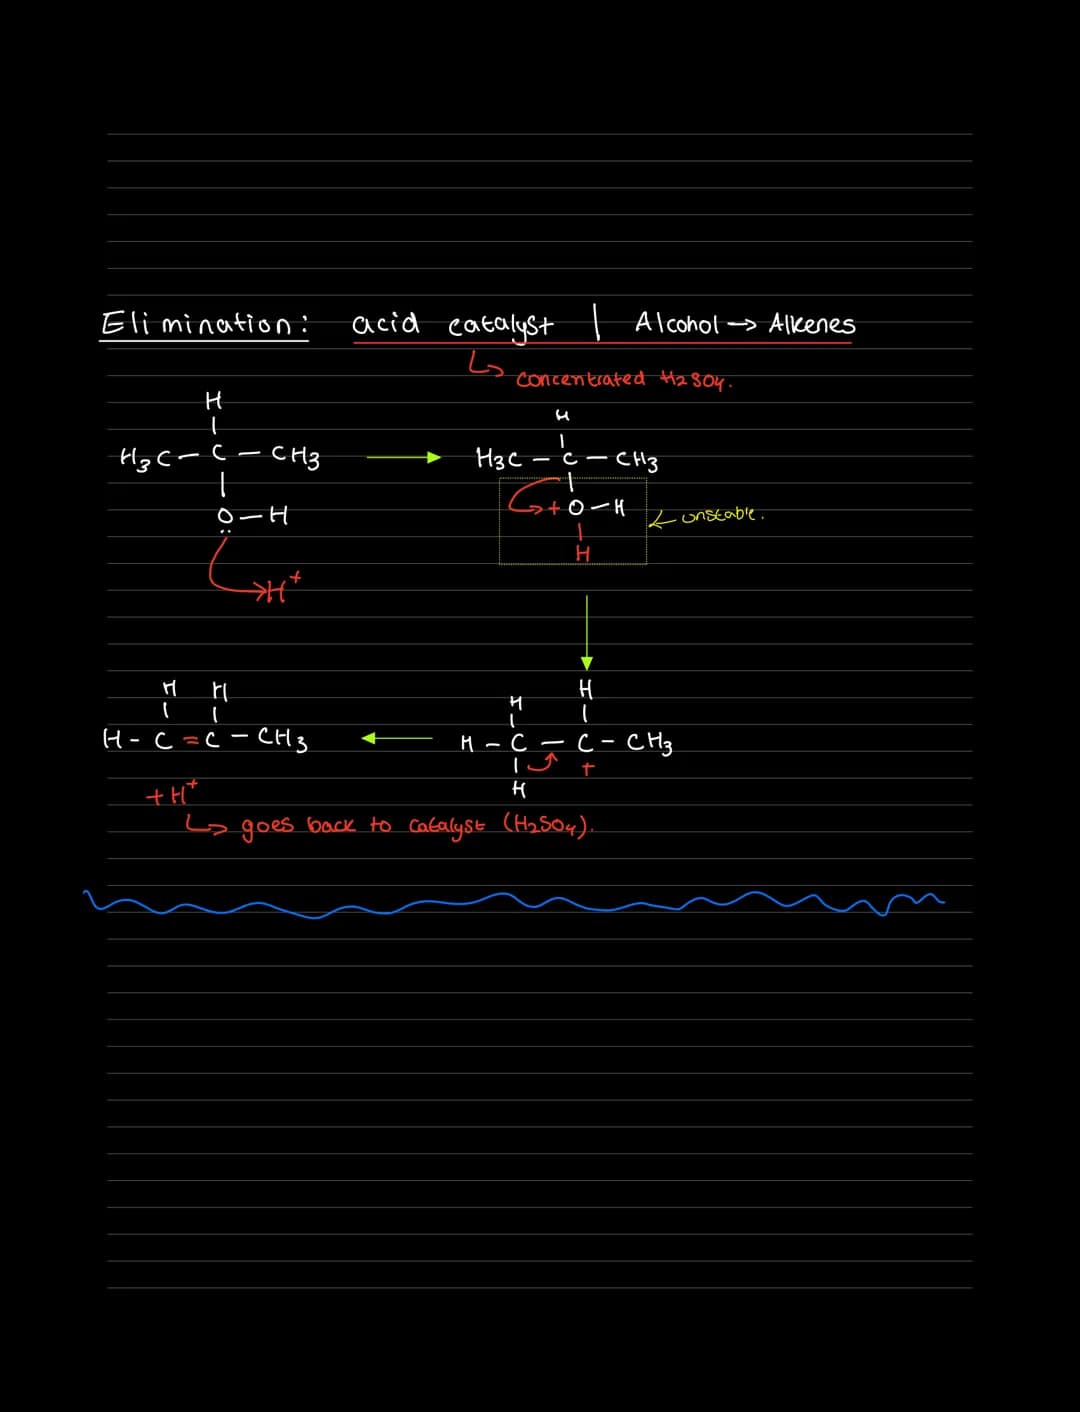 Elimination: acid catalyst | Alcohol → Alkenes
↳ concentrated H2SO4.
H
H
H3C - C - CH3
H3C - C - CH3
+ O - H
← unstable.
O - H
H
H+
H H
H
H
H - C = C - CH3
H - C - C - CH3
+
H
+ H+
↳ goes back to catalyst (H2SO4).